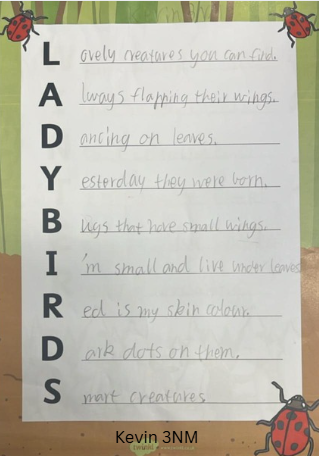 Lovely creatures you can find.
Always flapping their wings.
Dancing on leaves.
Yesterday they were born.
Bugs that have small wings.
I'm small and live under leaves
Red is my skin colour.
Dark dots on them.
Smart creatures
Kevin 3NM